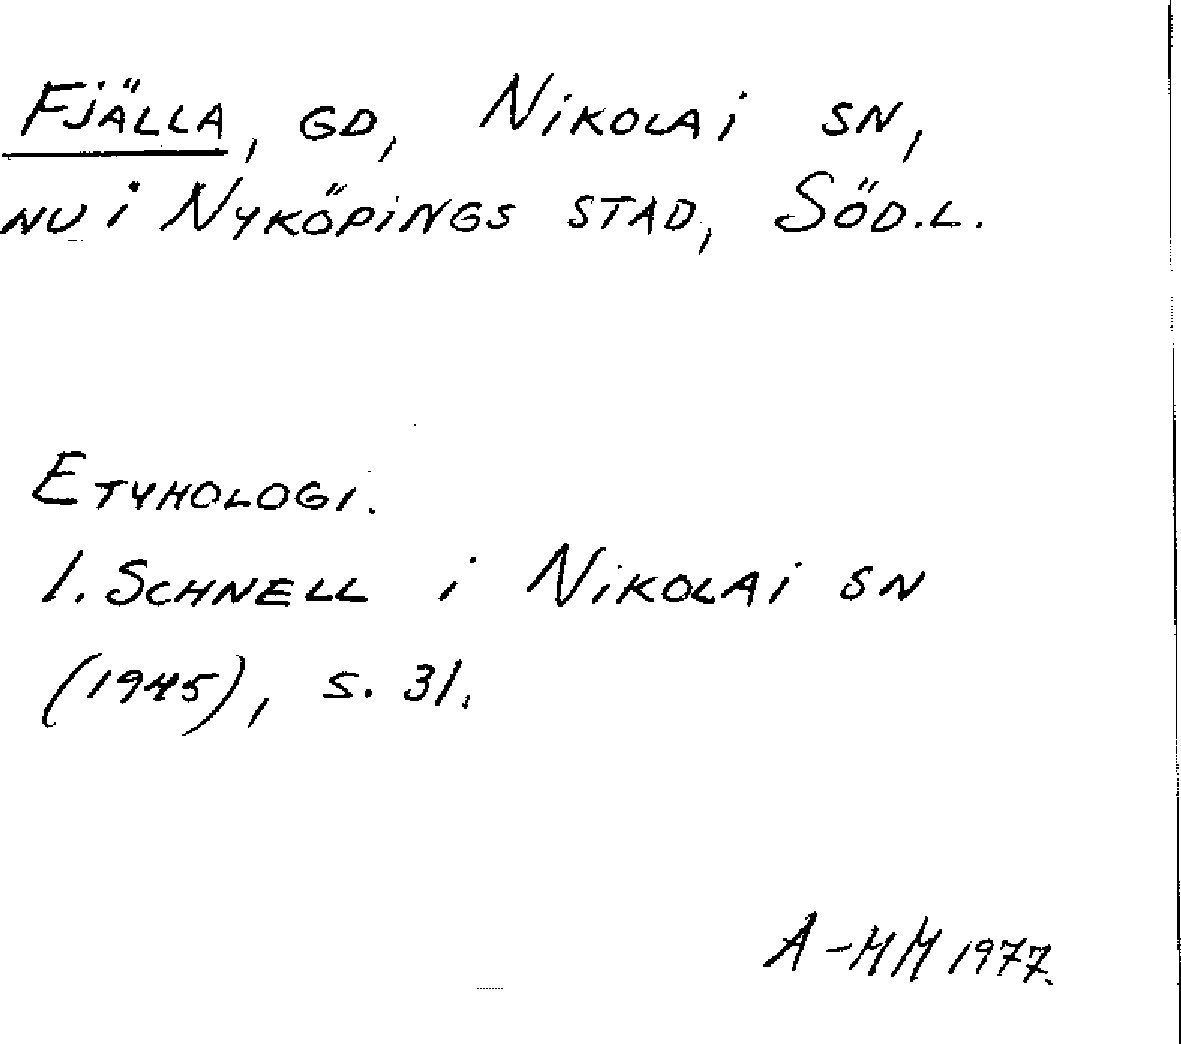 FJÄLLA, GD, NIKOLAI SN,
NU I NYKÖPINGS STAD, SÖD.L.
ETYMOLOGI.
I. SCHNELL I NIKOLAI SN
(1945), S. 31.
A-MM 1977.